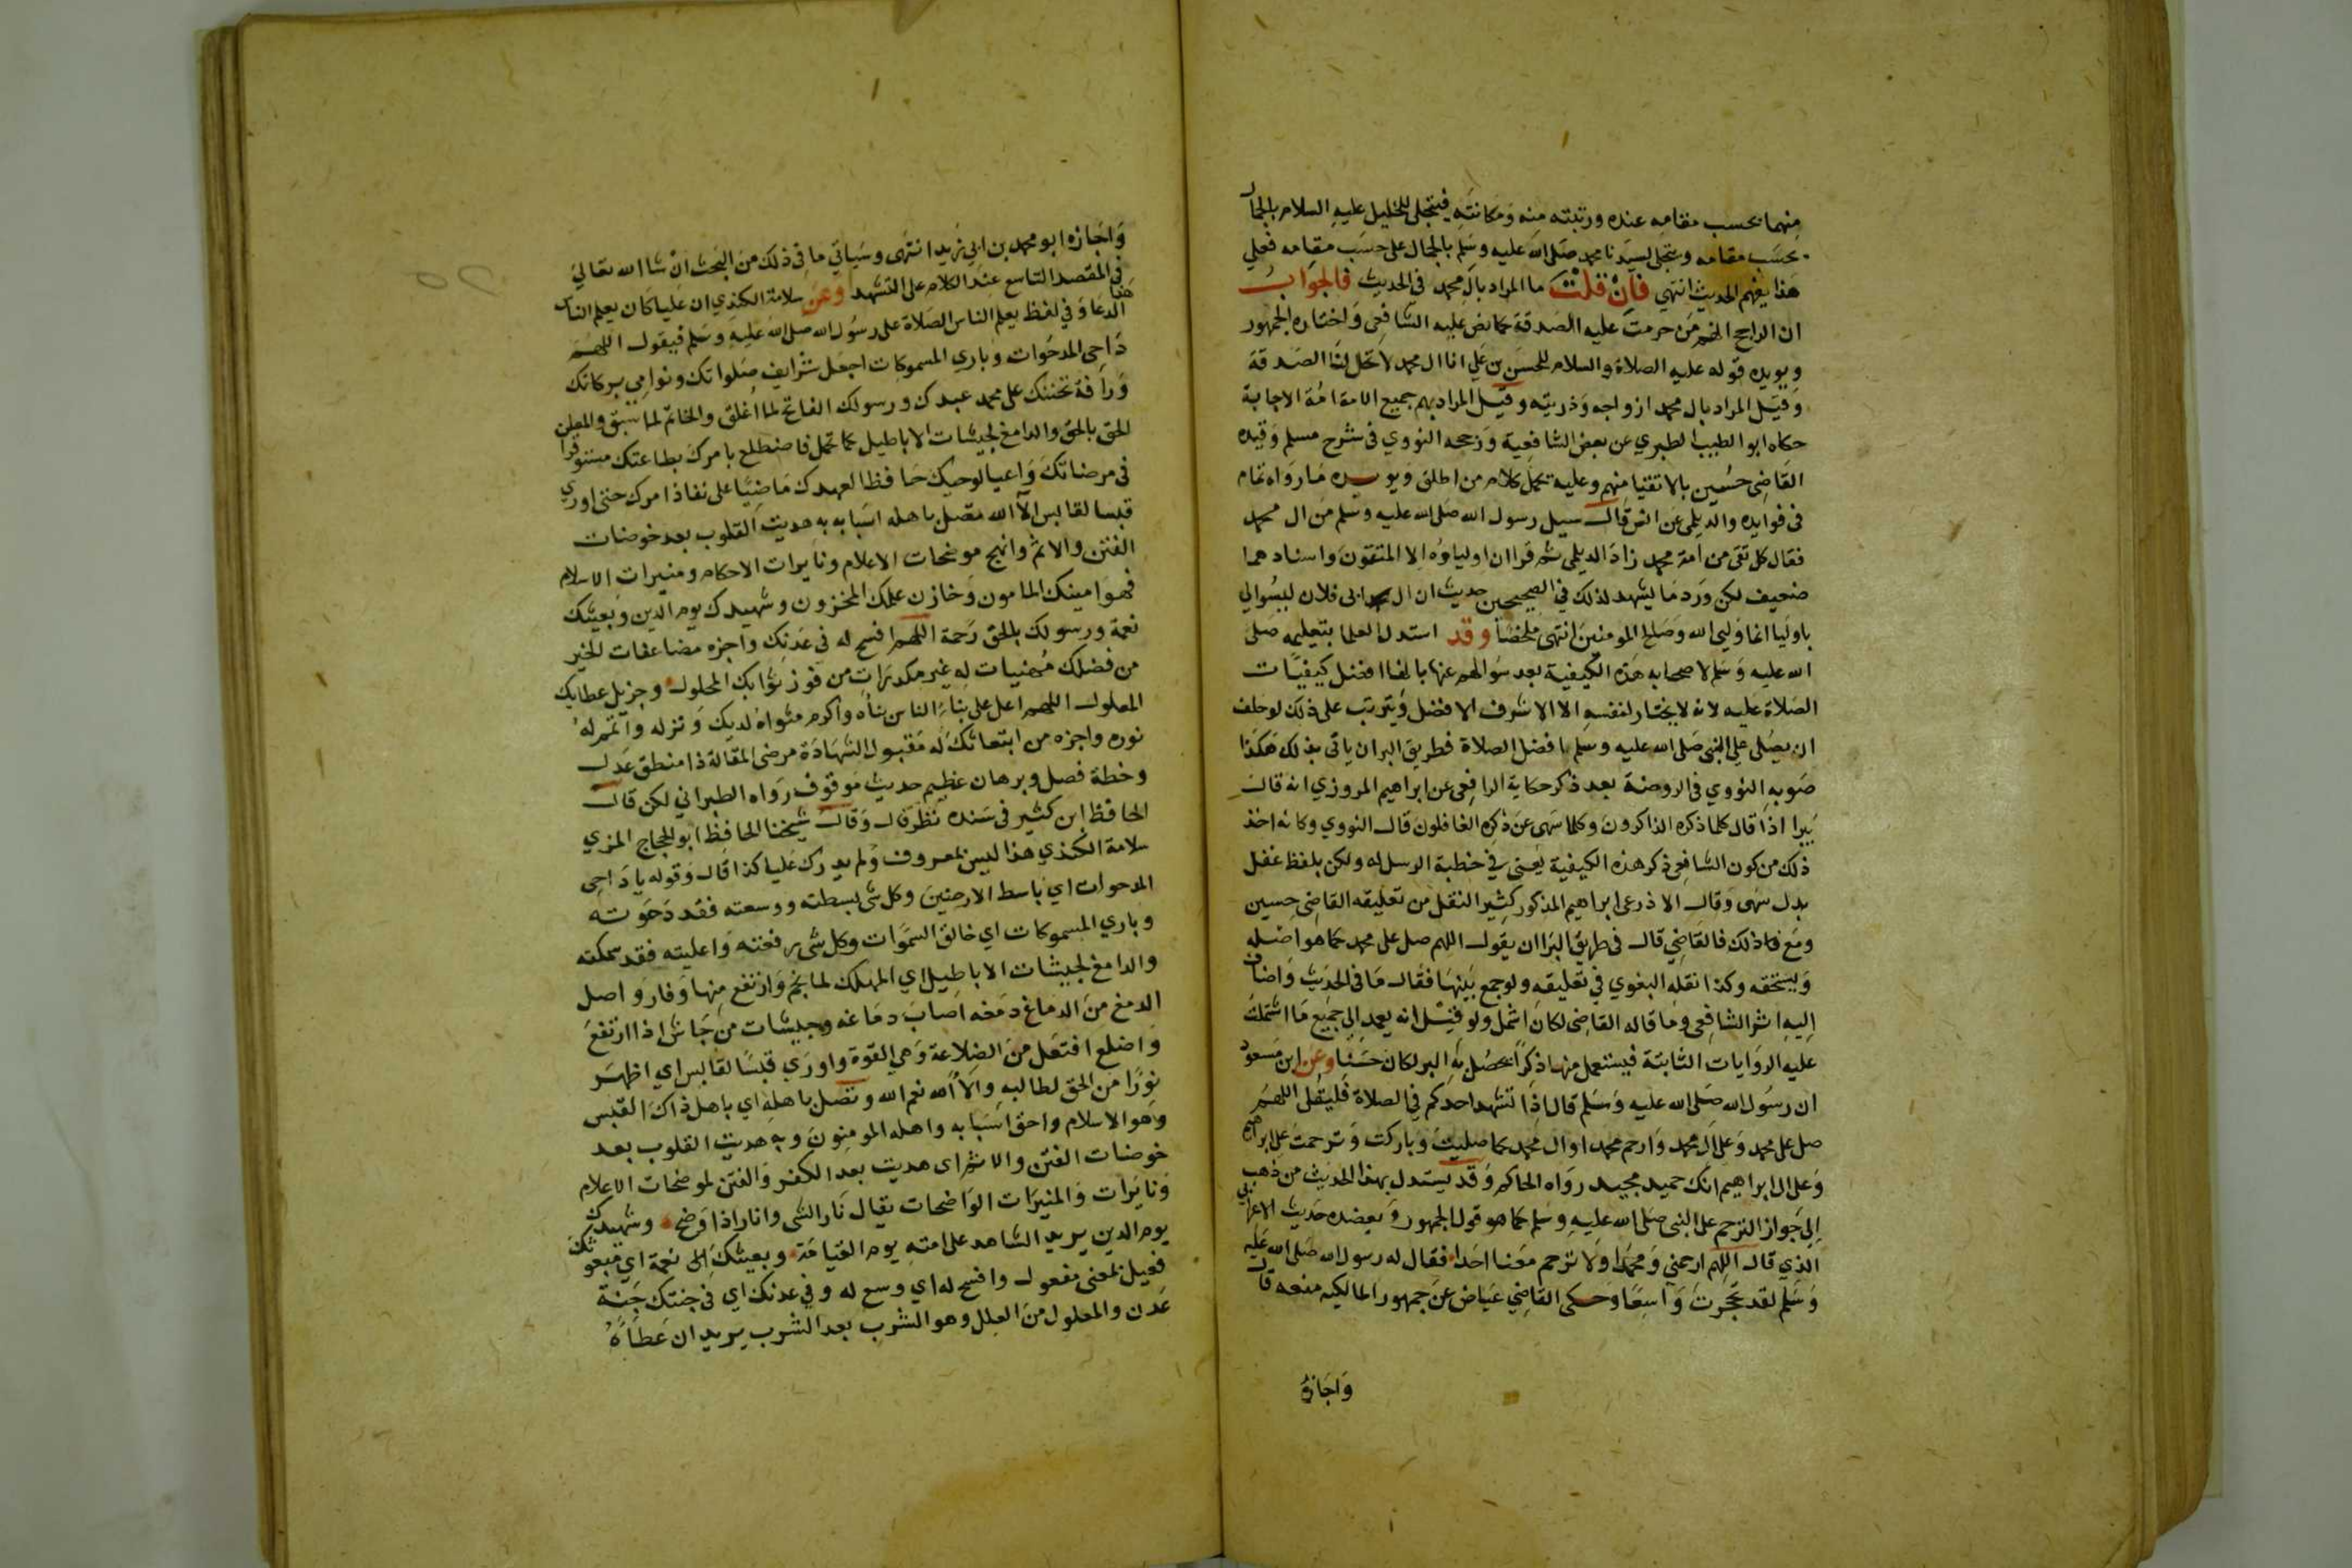 منهما بحسب مقامه عنده ورتبته منه ومكانته فيتجلى للخليل عليه السلام بالجمال
بحسب مقامه ويتجلى لسيدنا محمد صلى الله عليه وسلم بالجمال على حسب مقامه فعلي
هذا يفهم الحديث انتهي فان قلت ما المراد بال محمد في الحديث فالجواب
ان الراجح انهم من حرمت عليه الصدقة كما نص عليه الشافعي واختاره الجمهور
ويويده قوله عليه الصلاة والسلام للحسن بن علي انا ال محمد لا تحل لنا الصدقة
وقيل المراد بال محمد ازواجه وذريته وقيل المراد بهم جميع الامة امة الاجابة
حكاه ابو الطيب الطبري عن بعض الشافعية ورجحه النووي في شرح مسلم وقيده
القاضي حسين بالاتقيا منهم وعليه يحمل كلام من اطلق ويويده ما رواه تمام
في فوايده والديلمي عن انس قال سيل رسول الله صلى الله عليه وسلم من ال محمد
فقال كل تقي من امة محمد زاد الديلمي ثم قرا ان اولياؤه الا المتقون واسنادهما
ضعيف لكن ورد ما يشهد لذلك في الصحيحين حديث ان ال ابي فلان ليسوا لي
باوليا انما وليي الله وصالح المومنين انتهى ملخصا وقد استدل العلما بتعليمه صلى
الله عليه وسلم لاصحابه هذه الكيفية بعد سوالهم عنها بانها افضل كيفيات
الصلاة عليه لانه لا يختار لنفسه الا الاشرف الافضل ويترتب على ذلك لو حلف
ان يصلي علي النبي صلى الله عليه وسلم افضل الصلاة فطريق البر ان ياتي بذلك هكذا
صوبه النووي في الروضة بعد ذكر حكاية الرافعي عن ابراهيم المروزي انه قال
يبرا اذا قال كلما ذكره الذاكرون وكلما سهى عن ذكره الغافلون قال النووي وكانه اخذ
ذلك من كون الشافعي ذكر هذه الكيفية يعني في خطبة الرسالة ولكن بلفظ غفل
بدل سهى وقال الاذرعي ابراهيم المذكور كثير النقل من تعليقه القاضي حسين
ومع ذلك فالقاضي قال في طريق البر ان يقول اللهم صل على محمد كما هو اهله
ويستحقه وكذا نقله البغوي في تعليقه ولو جمع بينها فقال ما في الحديث واضاف
اليه اثر الشافعي وما قاله القاضي لكان اشمل ولو قيل انه يعمد الي جميع ما اشتملت
عليه الروايات الثابتة فيستعمل منها ذكرا يحصل به البر لكان حسنا وعن ابن مسعود
ان رسول الله صلى الله عليه وسلم قال اذا تشهد احدكم في الصلاة فليقل اللهم
صل على محمد وعلى ال محمد وارحم محمدا وال محمد كما صليت وباركت وترحمت على ابراهيم
وعلى ال ابراهيم انك حميد مجيد رواه الحاكم وقد يستدل بهذا الحديث من ذهب
الي جواز الترحم على النبي صلى الله عليه وسلم كما هو قول الجمهور ويعضده حديث الاعرابي
الذي قال اللهم ارحمني ومحمدا ولا ترحم معنا احدا فقال له رسول الله صلى الله عليه
وسلم لقد تحجرت واسعا وحكى القاضي عياض عن جمهور المالكيه منعه قال
واجازه
واجازه ابو محمد بن ابي زيد انتهى وسياتي ما في ذلك من البحث ان شا الله تعالي
في المقصد التاسع عند الكلام على التشهد وعن سلامة الكندي ان عليا كان يعلم الناس هذا
الدعا وفي لفظ يعلم الناس الصلاة على رسول الله صلى الله عليه وسلم فيقول اللهم
داحي المدحوات وباري المسموكات اجعل شرايف صلواتك ونوامي بركاتك
ورافة تحننك على محمد عبدك ورسولك الفاتح لما اغلق والخاتم لما سبق والمعلن
الحق بالحق والدامغ لجيشات الاباطيل كما حمل فاضطلع بامرك بطاعتك مستوفزا
في مرضاتك واعيا لوحيك حافظا لعهدك ماضيا على نفاذ امرك حتى اوري
قبسا لقابس الآ الله تصل باهله اسبابه به هديت القلوب بعد خوضات
الفتن والاثم وانهج موضحات الاعلام ونايرات الاحكام ومنيرات الاسلام
فهو امينك المامون وخازن علمك المخزون وشهيدك يوم الدين وبعيثك
نعمة ورسولك بالحق رحمة اللهم افسح له في عدنك واجزه مضاعفات الخير
من فضلك مهنيات له غير مكدرات من فوز ثوابك المحلول وجزيل عطايك
المعلول اللهم اعل على بناء الناس بناه واكرم مثواه لديك ونزله واتمم له
نوره واجزه من ابتعاثك له مقبول الشهادة مرضى المقالة ذا منطق عدل
وخطة فصل وبرهان عظيم حديث موقوف رواه الطبراني لكن قال
الحافظ ابن كثير في سنده نظر قال وقال شيخنا الحافظ ابو الحجاج المزي
سلامة الكندي هذا ليس بمعروف ولم يدرك عليا كذا قال وقوله يا داحي
المدحوات اي باسط الارضين وكل شي بسطته ووسعته فقد دحوته
وباري المسموكات اي خالق السموات وكل شي رفعته واعليته فقد سمكته
والدامغ لجيشات الاباطيل اي المهلك لما نجم وارتفع منها وفار واصل
الدمغ من الدماغ دمغه اصاب دماغه وجيشات من جاش اذا ارتفع
واضلع افتعل من الضلاعة وهي القوة واوري قبسا لقابس اي اظهر
نورا من الحق لطالبه والآ الله نعم الله وتصل باهله اي باهل ذاك القبس
وهو الاسلام واحق اسبابه واهله المومنون وبه هديت القلوب بعد
خوضات الفتن والاثم اي هديت بعد الكفر والفتن لموضحات الاعلام
ونايرات والمنيرات الواضحات يقال نار الشي وانار اذا وضح وشهيدك
يوم الدين يريد الشاهد على امته يوم القيامة وبعيثك الى نعمة اي مبعوثك
فعيل بمعنى مفعول وافسح له اي وسع له وفي عدنك اي في جنتك جنة
عدن والمعلول من العلل وهو الشرب بعد الشرب يريد ان عطاءه